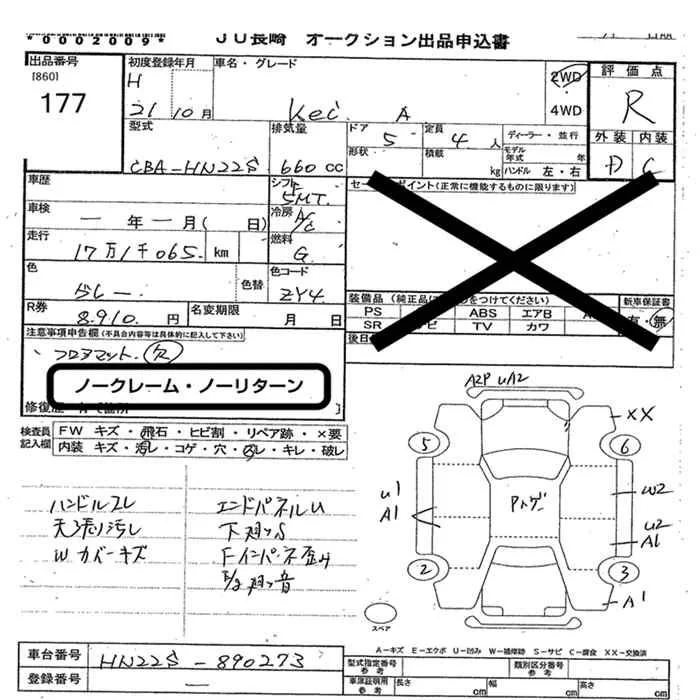 *0002009* JU長崎 オークション出品申込書
出品番号
[860]
177
初度登録年月
H
21 10月
車名・グレード
Kei A
2WD
・
4WD
評価点
R
外装 内装
D C
型式
CBA-HN22S
排気量
660cc
ドア
5
定員
4人
形状
積載
kg
ディーラー・並行
モデル年式 年
ハンドル 左・右
車歴
シフト
5MT.
セールスポイント(正常に機能するものに限ります)
車検
一年一月( 日)
冷房
A/C
走行
17万1千065. km
燃料
G
色
グレー
色替
色コード
ZY4
R券
8.910.円
名変期限
月 日
装備品
PS
SR
ABS
TV
エアB
カワ
新車保証書
有・無
注意事項申告欄(不具合内容等は具体的に記入して下さい)
フロアマット. 欠
ノークレーム・ノーリターン
検査員記入欄
FW キズ・飛石・ヒビ割・リペア跡・×要
内装 キズ・汚レ・コゲ・穴・凹レ・キレ・破レ
ハンドルスレ エンドパネルU
天張り汚レ 下廻りS
Wカバーキズ Fインパネ歪み
音
A2P U A2
XX
5 6
U1
A1
W2
U2
A1
2 3
A1
スペア
A-キズ E-エクボ U-凹み W-補修跡 S-サビ C-腐食 XX-交換済
車台番号 HN22S-890273
登録番号 —
型式指定番号
参考
類別区分番号
参考
車庫証明用
参考
長さ cm
幅 cm
高さ cm